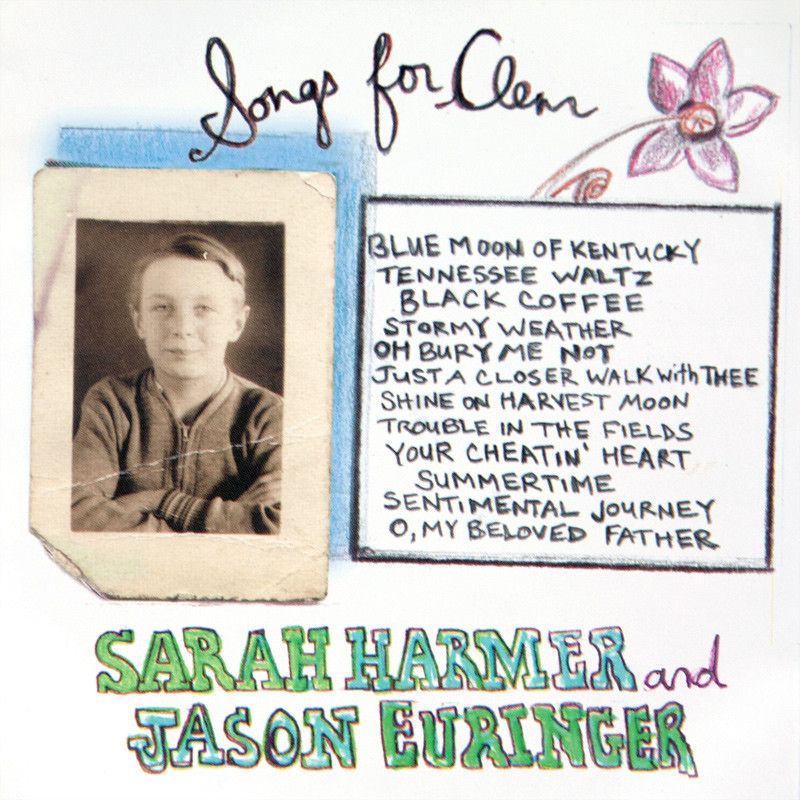 Songs for Clem
BLUE MOON OF KENTUCKY
TENNESSEE WALTZ
BLACK COFFEE
STORMY WEATHER
OH BURY ME NOT
JUST A CLOSER WALK WITH THEE
SHINE ON HARVEST MOON
TROUBLE IN THE FIELDS
YOUR CHEATIN' HEART
SUMMERTIME
SENTIMENTAL JOURNEY
O, MY BELOVED FATHER
SARAH HARMER and
JASON EURINGER